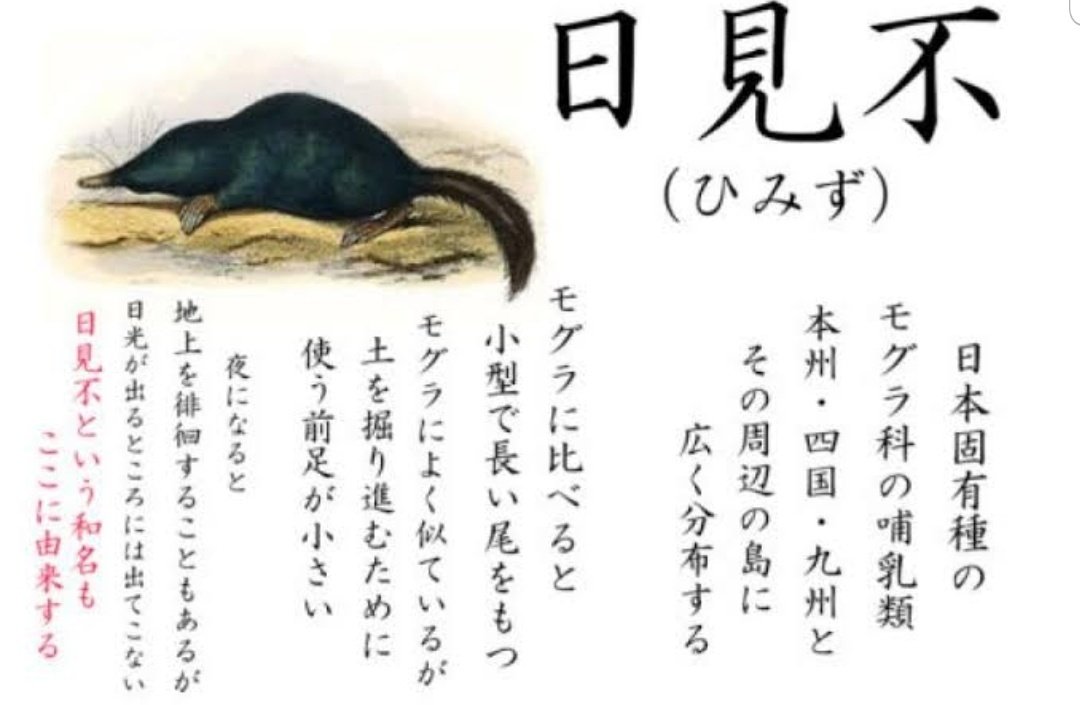 日見不
（ひみず）
日本固有種の
モグラ科の哺乳類
本州・四国・九州と
その周辺の島に
広く分布する
モグラに比べると
小型で長い尾をもつ
モグラによく似ているが
土を掘り進むために
使う前足が小さい
夜になると
地上を徘徊することもあるが
日光が出るところには出てこない
日見不という和名も
ここに由来する